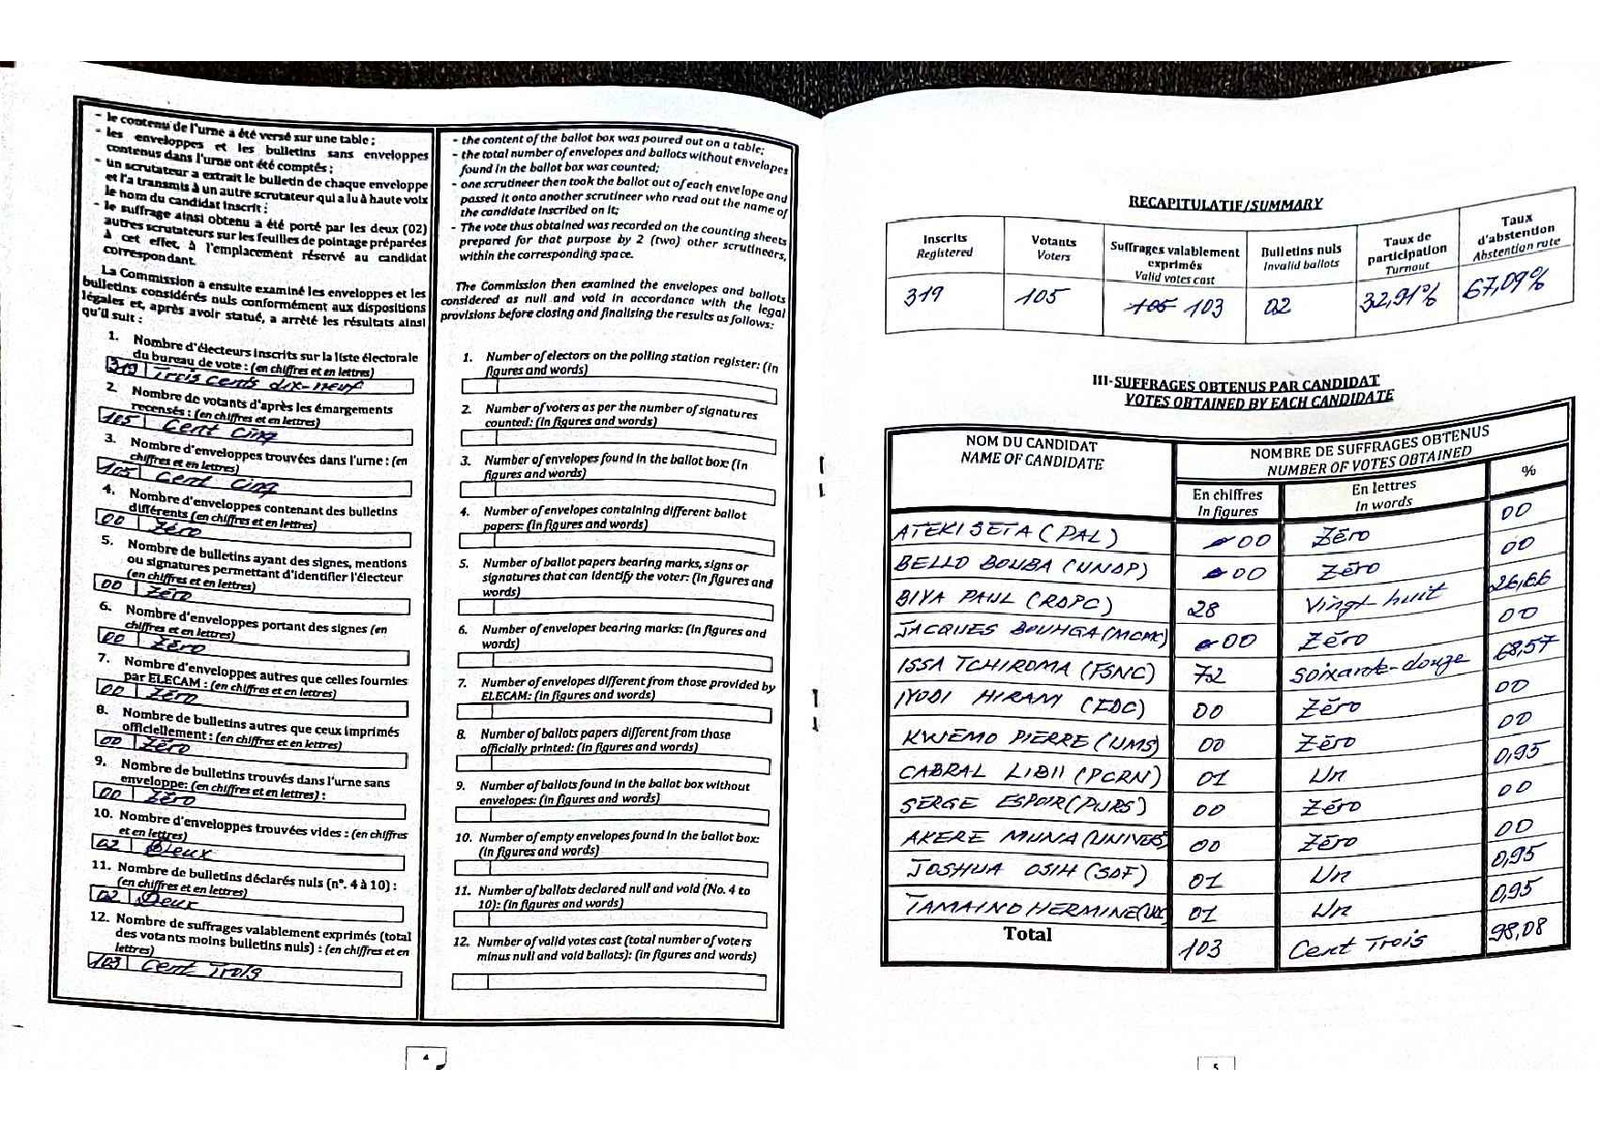 - le contenu de l'urne a été versé sur une table ;
- les enveloppes et les bulletins sans enveloppes
contenus dans l'urne ont été comptés ;
- un scrutateur a extrait le bulletin de chaque enveloppe
et l'a transmis à un autre scrutateur qui a lu à haute voix
le nom du candidat inscrit ;
- le suffrage ainsi obtenu a été porté par les deux (02)
autres scrutateurs sur les feuilles de pointage préparées
à cet effet, à l'emplacement réservé au candidat
correspondant.
La Commission a ensuite examiné les enveloppes et les
bulletins considérés nuls conformément aux dispositions
légales et, après avoir statué, a arrêté les résultats ainsi
qu'il suit :
1. Nombre d'électeurs inscrits sur la liste électorale
du bureau de vote : (en chiffres et en lettres)
319 Trois cents dix-neuf
2. Nombre de votants d'après les émargements
recensés : (en chiffres et en lettres)
105 Cent Cinq
3. Nombre d'enveloppes trouvées dans l'urne : (en
chiffres et en lettres)
105 Cent Cinq
4. Nombre d'enveloppes contenant des bulletins
différents (en chiffres et en lettres)
00 Zéro
5. Nombre de bulletins ayant des signes, mentions
ou signatures permettant d'identifier l'électeur
(en chiffres et en lettres)
00 Zéro
6. Nombre d'enveloppes portant des signes (en
chiffres et en lettres)
00 Zéro
7. Nombre d'enveloppes autres que celles fournies
par ELECAM : (en chiffres et en lettres)
00 Zéro
8. Nombre de bulletins autres que ceux imprimés
officiellement : (en chiffres et en lettres)
00 Zéro
9. Nombre de bulletins trouvés dans l'urne sans
enveloppe: (en chiffres et en lettres) :
00 Zéro
10. Nombre d'enveloppes trouvées vides : (en chiffres
et en lettres)
02 Deux
11. Nombre de bulletins déclarés nuls (n°. 4 à 10) :
(en chiffres et en lettres)
02 Deux
12. Nombre de suffrages valablement exprimés (total
des votants moins bulletins nuls) : (en chiffres et en
lettres)
103 Cent Trois
- the content of the ballot box was poured out on a table;
- the total number of envelopes and ballots without envelopes
found in the ballot box was counted;
- one scrutineer then took the ballot out of each envelope and
passed it onto another scrutineer who read out the name of
the candidate inscribed on it;
- The vote thus obtained was recorded on the counting sheets
prepared for that purpose by 2 (two) other scrutineers,
within the corresponding space.
The Commission then examined the envelopes and ballots
considered as null and void in accordance with the legal
provisions before closing and finalising the results as follows:
1. Number of electors on the polling station register: (in
figures and words)
2. Number of voters as per the number of signatures
counted: (in figures and words)
3. Number of envelopes found in the ballot box: (in
figures and words)
4. Number of envelopes containing different ballot
papers: (in figures and words)
5. Number of ballot papers bearing marks, signs or
signatures that can identify the voter: (in figures and
words)
6. Number of envelopes bearing marks: (in figures and
words)
7. Number of envelopes different from those provided by
ELECAM: (in figures and words)
8. Number of ballots papers different from those
officially printed: (in figures and words)
9. Number of ballots found in the ballot box without
envelopes: (in figures and words)
10. Number of empty envelopes found in the ballot box:
(in figures and words)
11. Number of ballots declared null and void (No. 4 to
10): (in figures and words)
12. Number of valid votes cast (total number of voters
minus null and void ballots): (in figures and words)
4
RECAPITULATIF/SUMMARY
Inscrits Votants Suffrages valablement exprimés Bulletins nuls Taux de participation Taux d'abstention
Registered Voters Valid votes cast Invalid ballots Turnout Abstention rate
319 105 105 103 02 32,91% 67,09%
III-SUFFRAGES OBTENUS PAR CANDIDAT
VOTES OBTAINED BY EACH CANDIDATE
NOM DU CANDIDAT NOMBRE DE SUFFRAGES OBTENUS
NAME OF CANDIDATE NUMBER OF VOTES OBTAINED
En chiffres En lettres %
In figures In words
ATEKI SETA (PAL) 00 Zéro 00
BELLO BOUBA (UNDP) 00 Zéro 00
BIYA PAUL (RDPC) 28 Vingt-huit 26,66
JACQUES BOUHGA (MCMC) 00 Zéro 00
ISSA TCHIROMA (FSNC) 72 Soixante-douze 68,57
IYODI HIRAM (FDC) 00 Zéro 00
KWEMO PIERRE (UMS) 00 Zéro 00
CABRAL LIBII (PCRN) 01 Un 0,95
SERGE ESPOIR (PURS) 00 Zéro 00
AKERE MUNA (UNIVERS) 00 Zéro 00
JOSHUA OSIH (SDF) 01 Un 0,95
TAMAINO HERMINE 01 Un 0,95
Total 103 Cent Trois 98,08
5